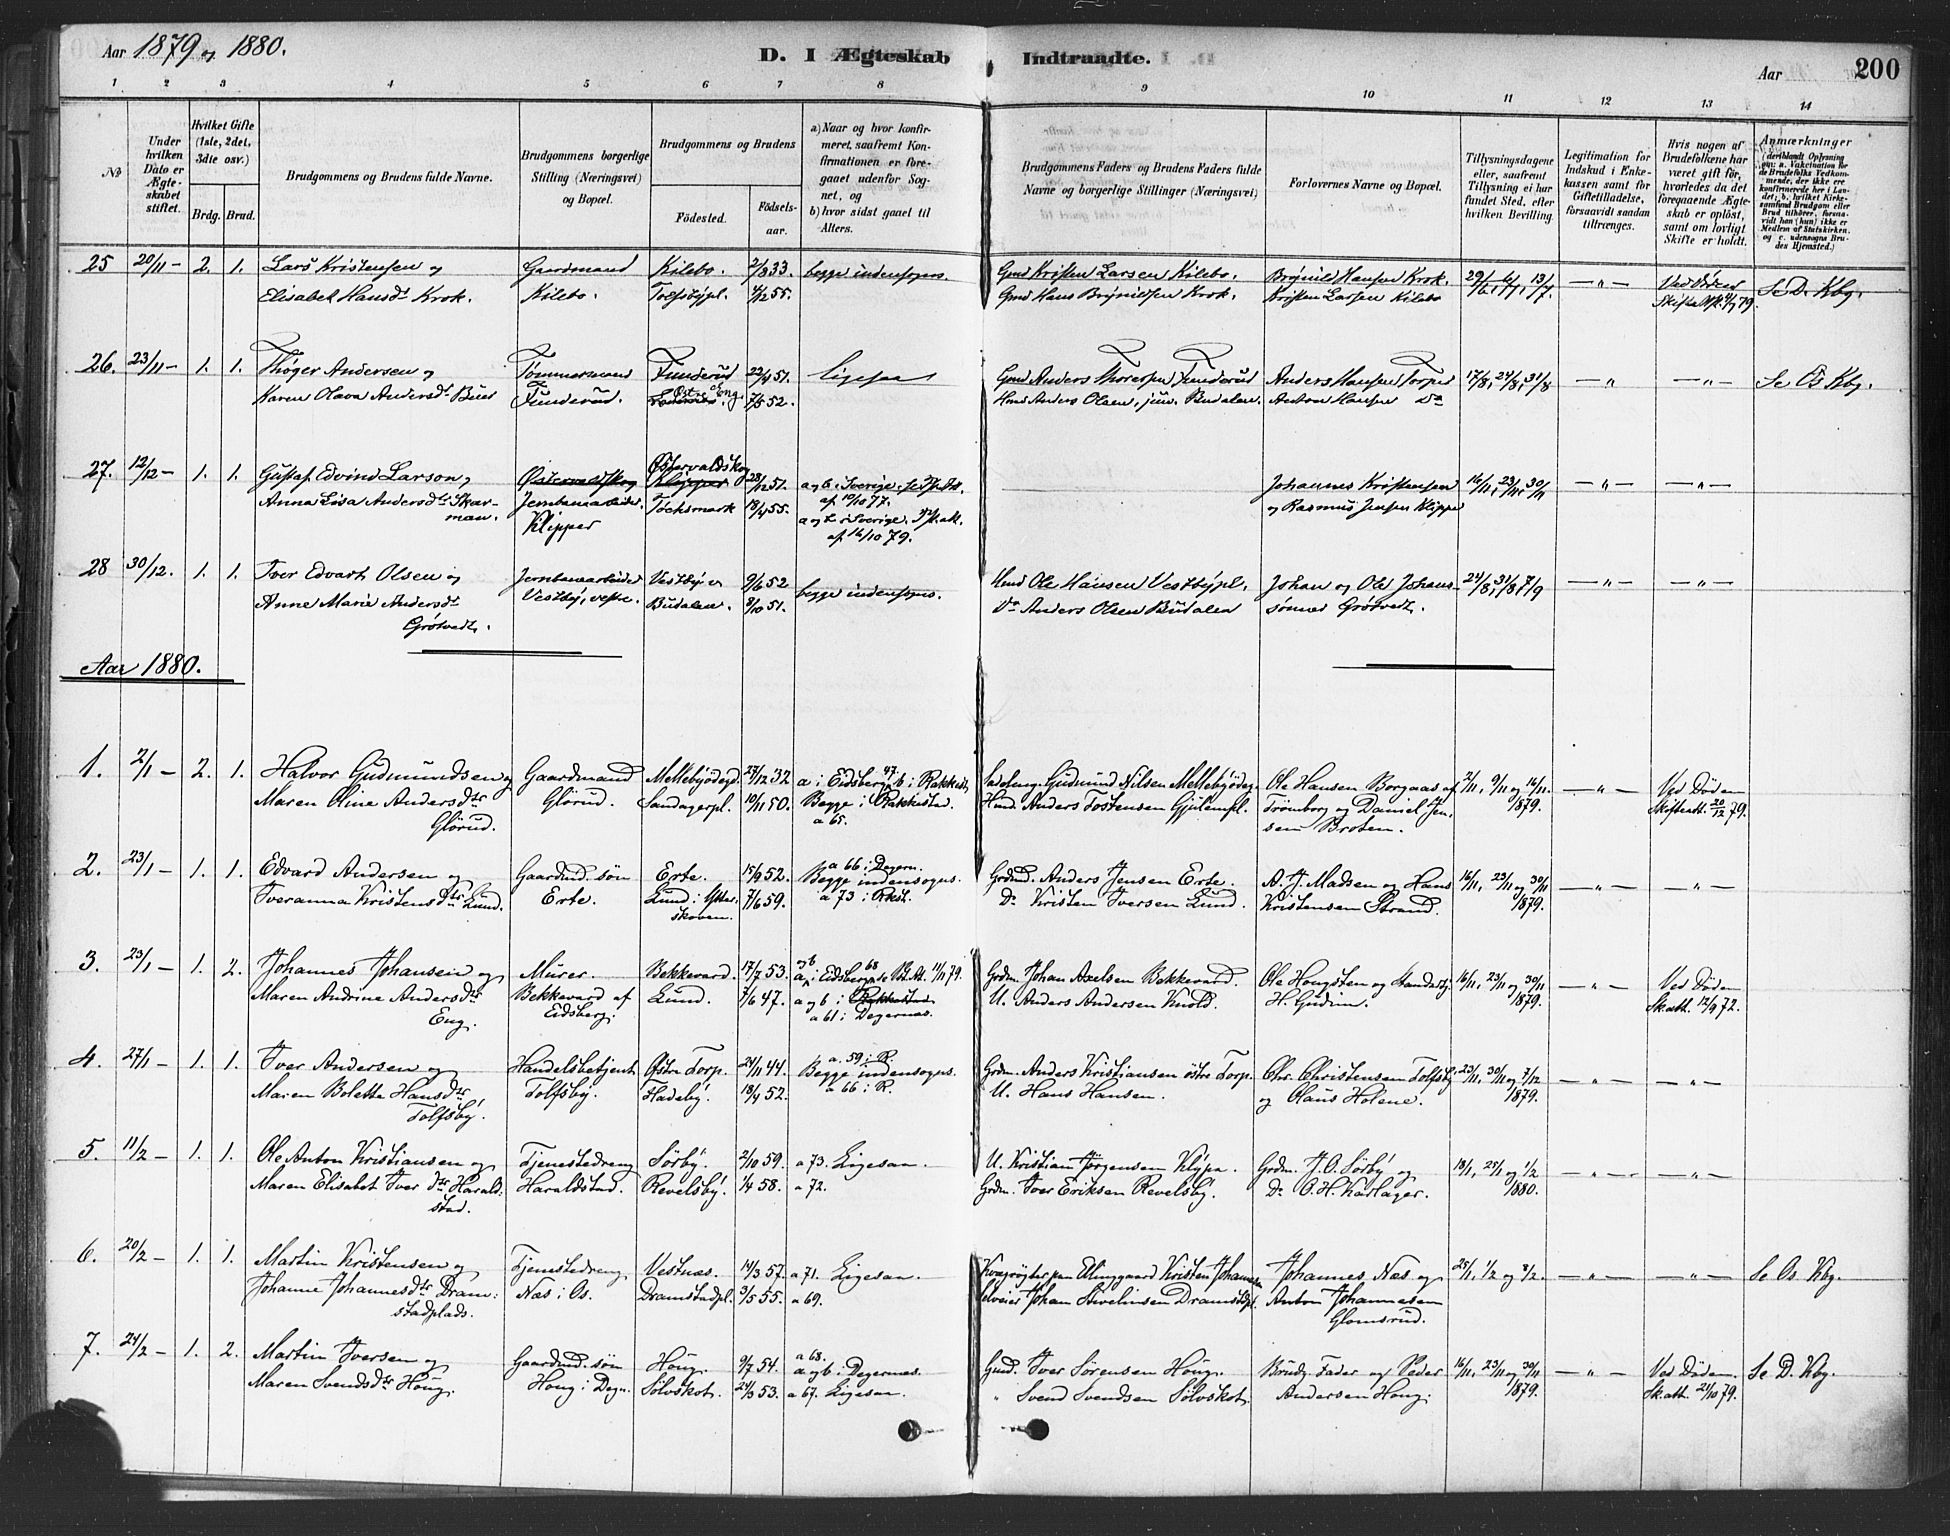 Aar 1879 og 1880.
D. I Ægteskab Indtraadte.
Aar 200
1 2 3 4 5 6 7 8 9 10 11 12 13 14
No
Under hvilken Dato er Ægteskabet stiftet.
Hvilket Gifte (1ste, 2det, 3die osv.)
Brdg. Brud.
Brudgommens og Brudens fulde Navne.
Brudgommens borgerlige Stilling (Næringsvei) og Bopæl.
Brudgommens og Brudens
Födested. Födselsaar.
a) Naar og hvor konfirmeret, saafremt Konfirmationen er foregaaet udenfor Sognet, og
b) hvor sidst gaaet til Alters.
Brudgommens Faders og Brudens Faders fulde Navne og borgerlige Stillinger (Næringsvei)
Forlovernes Navne og Bopæl.
Tillysningsdagene eller, saafremt Tillysning ei har fundet Sted, efter hvilken Bevilling.
Legitimation for Indskud i Enkekassen samt for Giftetilladelse, forsaavidt saadan tiltrænges.
Hvis nogen af Brudefolkene har været gift för, hvorledes da det foregaaende Ægteskab er oplöst, samt om lovligt Skifte er holdt.
Anmærkninger
25 20/11 — 2. 1. Lars Kristensen og Gaardmand Kilebo. 2/8 33. begge indensogns. Gmd Kristen Larsen Kilebo. Brynild Hansen Krok. 29/6, 6/7, 13/7 — " — Ved Döden
Elisabet Hansdt Krok. Kilebo. Tolfsbypl. 4/12 55. Gmd Hans Brynildsen Krok. Kristen Larsen Kilebo 79. Se D. Kbg.
26. 23/11 — 1. 1. Thöger Andersen og Tömmermand Funderud 22/4 51. ligesaa Gmd Anders Thoresen Funderud Anders Hansen Torper 17/8, 24/8, 31/8 — " — — " — Se Os Kbg.
Karen Olava Andersdt Buer Funderud. 7/5 52. Hmd Anders Olsen, jun. Budalen. Anton Hansen Do
27. 12/12 — 1. 1. Gustaf Edvind Larson, Östervaldskog Östervaldskog 28/12 51. a og b i Sverige, Johannes Kristensen 16/11, 23/11, 30/11 — " — — " —
Anna Lisa Andersdtr Skarman. Jernbanearbeider. Klipper Töcksmark 18/4 55. af 10/10 77. og Rasmus Jensen Klipper
a og b i Sverige. af 16/10 79.
28 30/12. 1. 1. Iver Edvart Olsen og Jernbanearbeider Vestby v 9/6 52 begge indensogns. Hmd Ole Hansen Vestbypl. Johan og Ole Johans- 24/8, 31/8, 7/9 — " — — " —
Anne Marie Andersdt Vestby, vestre. Budalen. 8/10 51. Do Anders Olsen Budalen sönner Grötvedt.
Grötvedt.
Aar 1880.
1. 2/1 — 2. 1. Halvor Gudmundsen og Gaardmand Mellebyödegd. 27/12 32 a i Eidsberg 47 b i Rakkest. Gudmund Nilsen Mellebyödeg. Ole Hansen Borgaas af 2/11, 9/11 og 16/11 — " — Ved Döden
Maren Oline Andersdtr Glörud. Sandagerpl. 10/11 50. Begge i Rakkestad. Hmd Anders Tostensen Gjulempl. Trömborg og Daniel Jen- 1879. Skifteatt. 20/12 79.
Glörud. a 65. sen Broten.
2. 23/1 — 1. 1. Edvard Andersen og Gaardmd. sön Erte. 15/9 52. a 66 i Degern. Grdmd. Anders Jensen Erte. A. J. Madsen og Hans 16/11, 23/11 og 30/11 — " — — " —
Iveranna Kristensdtr Lund. Erte. Lund i Ytter- 7/6 59. Begge indensogns. Do Kristen Iversen Lund. Kristensen Strand. 1879.
skoven. a 73 i Rkst.
3. 23/1 — 1. 2. Johannes Johansen og Murer. Bekkevard. 17/7 53. a i Eidsberg 68 11/11 79. Grdm. Johan Axelsen Bekkevard. Ole Hougsten og 16/11, 23/11 og 30/11 — " — Ved Döden
Maren Andrine Andersdtr Bekkevard af Lund. 7/6 47. a og b i Rakkestad U. Anders Andersen Knold. H. Gudim. 1879. Skatt. 12/9 72.
Eng. Eidsberg. a 61 i Degernes.
4. 27/1 — 1. 1. Iver Andersen og Handelsbetjent Östre Torp. 24/11 44. a. 59 i R. Grdm. Anders Kristiansen östre Torp. Chr. Christensen Tolfsby 23/11, 30/11 og 7/12 — " — — " —
Maren Bolette Hansdtr Tolfsby. Fladeby. 18/4 52. Begge indensogns. U. Hans Hansen. og Olaus Holene. 1879.
Tolfsby. a 66 i R.
5. 11/2 — 1. 1. Ole Anton Kristiansen og Tjenestedreng Sörby. 2/10 59. a 73. Ligesaa. U. Kristian Jörgensen Klypa. Grdm. J. O. Sörby og 18/1, 25/1 og 1/2 — " — — " —
Maren Elisabet Iversdtr Harald- Haraldstad. Revelsby. 1/4 58. a 72. Grdm. Iver Eriksen Revelsby. Do O. H. Karlager. 1880.
stad.
6. 20/2 — 1. 1. Martin Kristensen og Tjenestedreng Vestnæs. 14/3 57. a 71. Ligesaa. Kvægrögter paa Elinggaard Kristen Johannesen Johannes Næs og 25/1, 1/2 og 8/2. — " — — " — Se Os Kbg.
Johanne Johannesdtr Dram- Næs i Os. Dramstadpl. 3/5 55. a 69. Johan Dramstadpl. Anton Johannesen
stadplads. Glomsrud.
7. 24/2 — 1. 2. Martin Iversen og Gaardmd. sön Houg. 9/7 54. a 68. a og b i Degernæs. Gmd. Iver Sörensen Houg. Brudg. Fader og Peder 16/11, 23/11 og 30/11 — " — Ved Döden. Se D. Kbg.
Maren Svendsdtr Houg. Houg i Degn. Sölvskot. 24/3 53. a 67. Ligesaa. " Svend Svendsen Sölvskot. Andersen Houg. 1879. Skatt. 21/10 79.